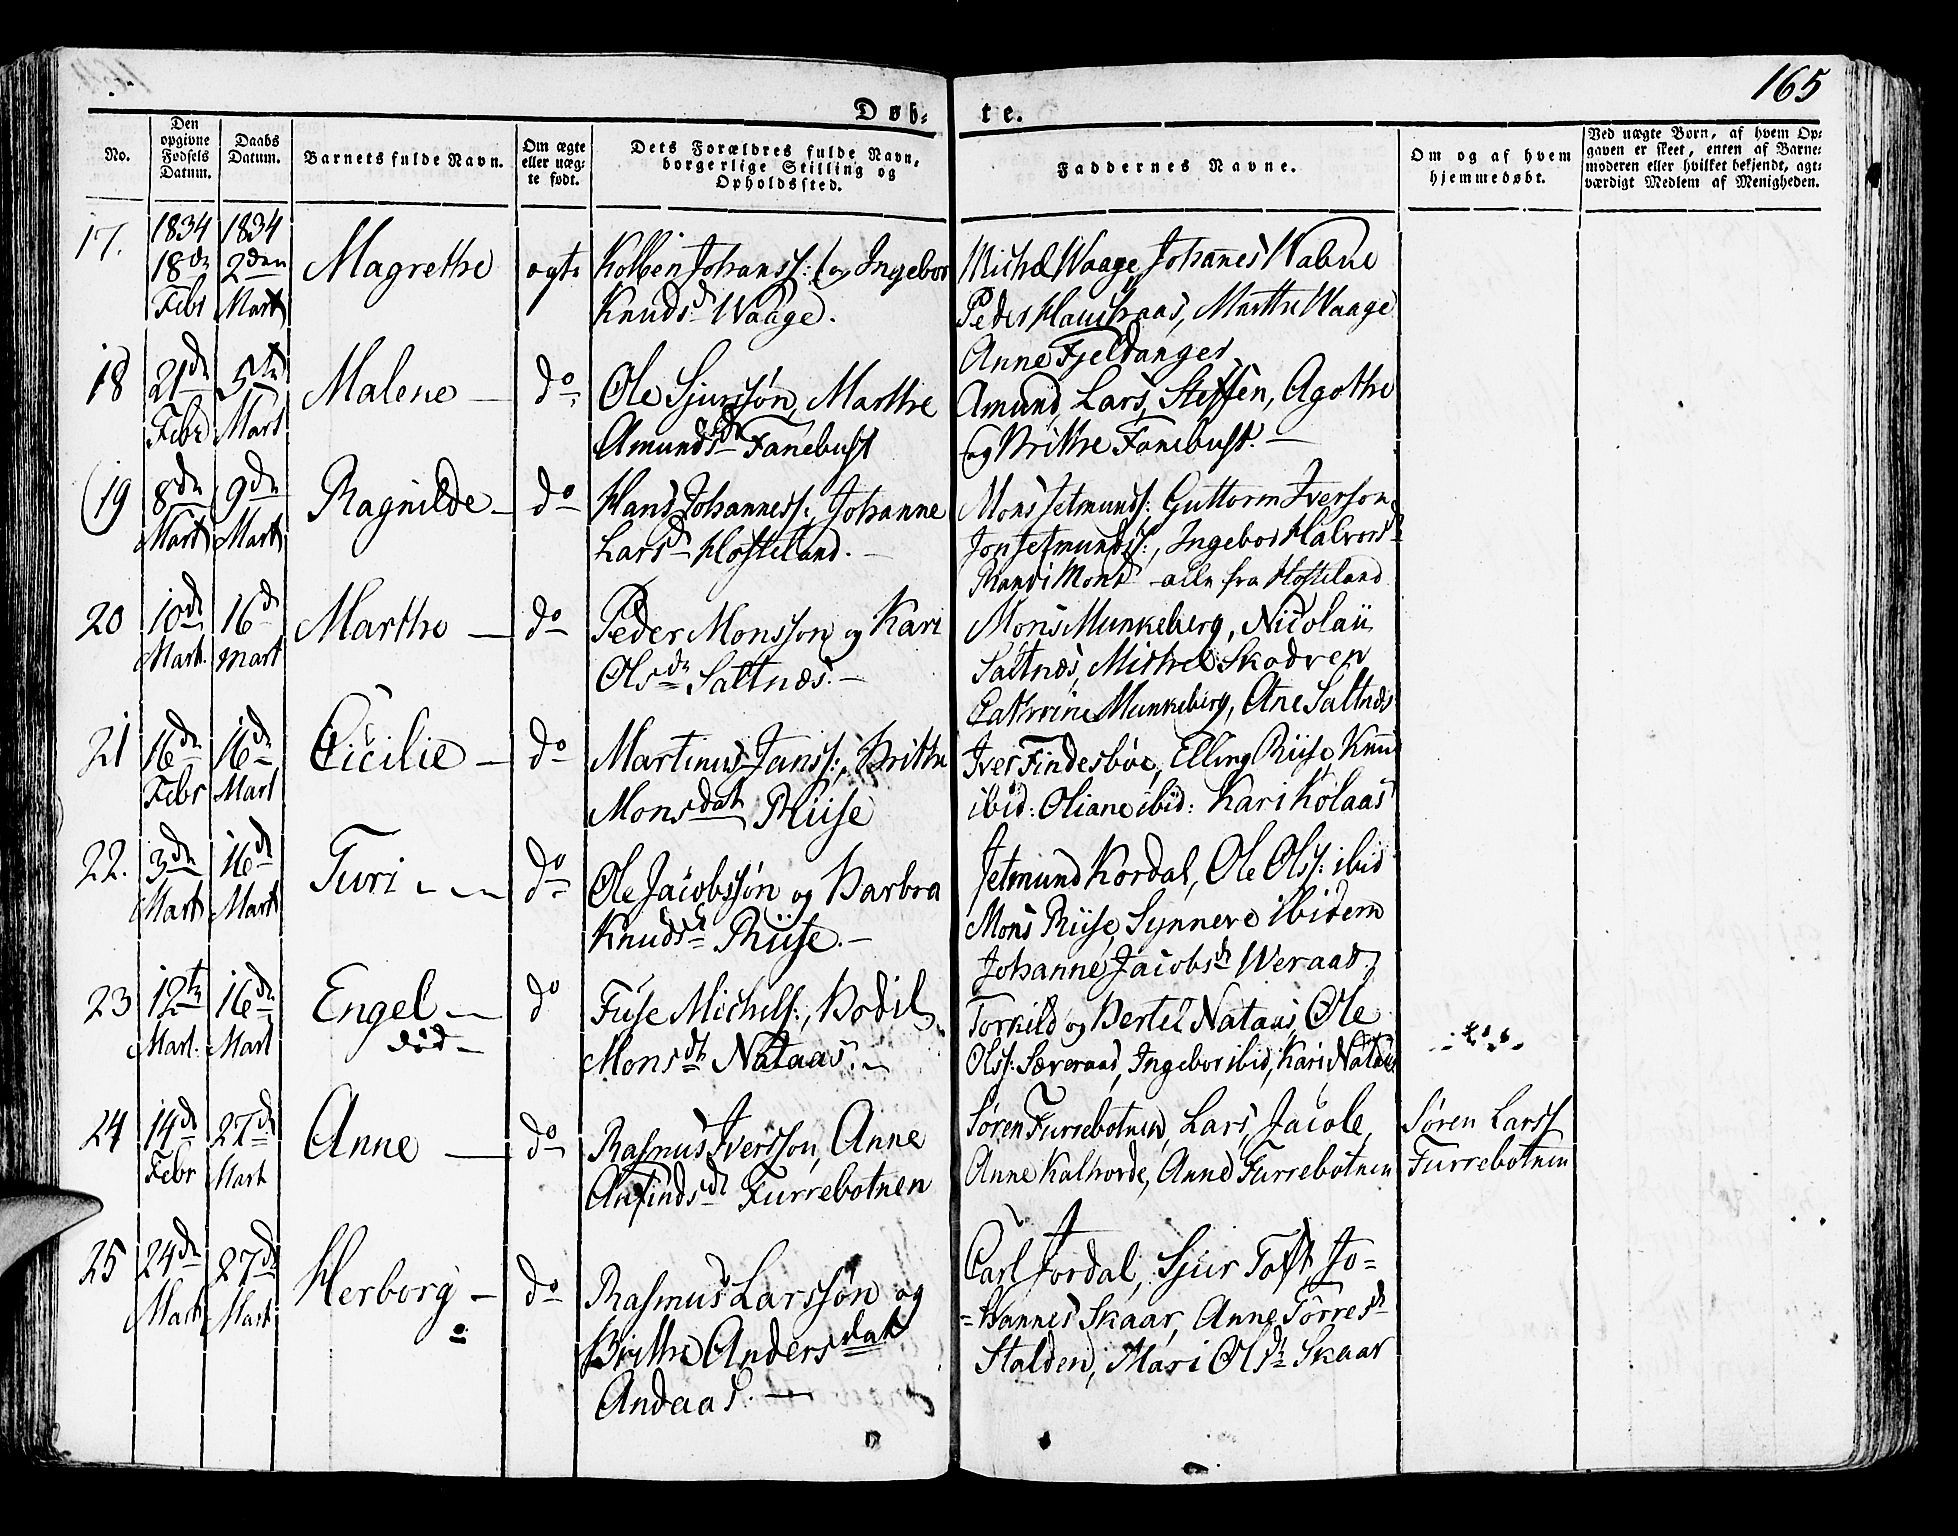 165
Døb-
te.
No.
Den opgivne Fødsels Datum.
Daabs Datum.
Barnets fulde Navn.
Om ægte eller uæg-te født.
Dets Forældres fulde Navn, borgerlige Stilling og Opholdssted.
Faddernes Navne.
Om og af hvem hjemmedøbt.
Ved uægte Børn, af hvem Op-gaven er skeet, enten af Barne-moderen eller hvilket bekjendt, agt-værdigt Medlem af Menigheden.
17.
1834 18de Febr
1834 2den Mart
Magrethe
ægte
Kolben Johanss: og Ingebor
Knudsd Waage.
Michel Waage, Johannes
Peder Haukaas, Marthe Waage
Anne Fjeldanger
18
21de Febr
5te Mart
Malene —
do
Ole Sjursøn, Marthe
Amundsd Fanebust
Amund, Lars, Steffen, Agothe
og Brithe Fanebust. —
19
8de Mart
9de Mart
Ragnilde —
do
Hans Johanness:, Johanne
Larsd Hosteland. —
Mons Jetmunds: Guttorm Iverson
Jon Jetmundss:, Ingebor Halvorsd
Randi Monsd alle fra Hosteland
20
10de Mart.
16de Mart
Marthe —
do
Peder Monsson og Kari
Olsdr Saltnæs. —
Mons Munkeberg, Nicolaii
Saltnæs, Michel Skodven
Cathrine Munkeberg, Ane Saltnæs
21
16de Febr
16de Mart
Cicilie —
do
Martinus Janss:, Brithe
Monsdat Riise
Iver Findesbøe, Elling Riise, Knud
ibid: Oliane ibid: Kari Kolaas
22.
3de Mart
16de Mart
Turi
do
Ole Jacobssøn og Barbra
Knudsd Riise. —
Jetmund Kordal, Ole Olss: ibid
Mons Riise, Synneve ibidem
Johanne Jacobsd Weraas
23
12te Mart.
16de Mart
Engel —
død —
do
Fuse Michels:, Bodil
Monsdr Nataas. —
Torkild og Bertel Nataas, Ole
Olss: Sæveraas, Ingebor ibid, Kari Nataas
24
14de Febr
27de Mart
Anne —
do
Rasmus Iversson, Anne
Anfindsdr Furrebotnen
Søren Furrebotnen, Lars, Jacob,
Anne Kalhovde, Anne Furrebotnen
Søren Larss
Furrebotnen
25
24de Mart
27de Mart
Herborg —
do
Rasmus Larssøn og
Brithe Andersdat
Andaas. —
Carl Jordal, Sjur Toft, Jo-
-hannes Skaar, Anne Torresd
Stalden, Mari Olsdr Skaar